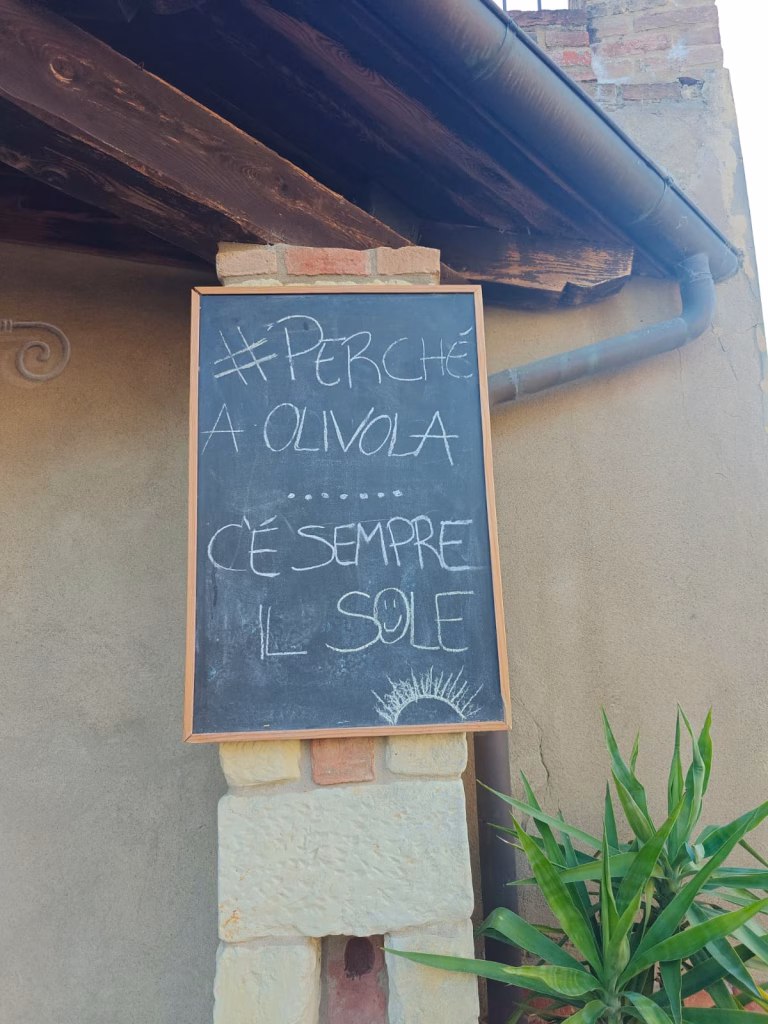 #PERCHÉ
A OLIVOLA
........
C'É SEMPRE
IL SOLE